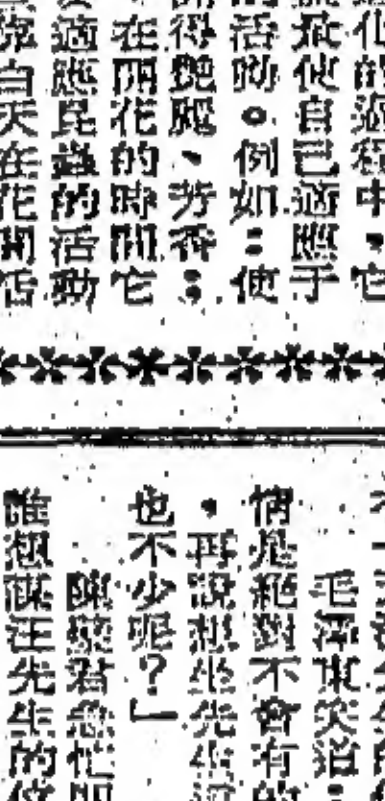 化的過程中，它
使自己適應于
活動。例如：使
得艷麗、芳香；
在開花的時間它
適應昆蟲的活動
白天在花間活
毛澤東笑道：
情是絕對不會有的
，再說想坐先生
也不少呢？」
陳璧君急忙
誰想謀汪先生的位